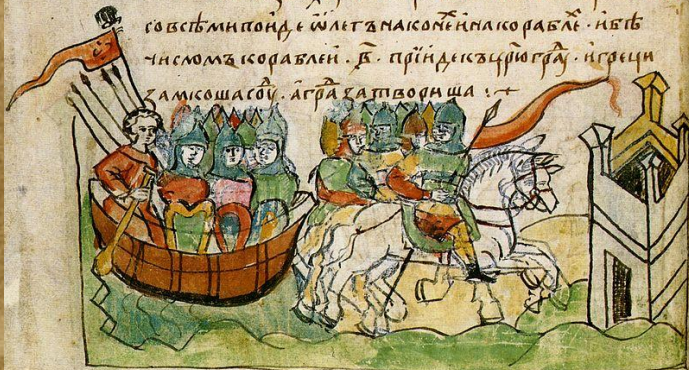 со всѣми поиде ѡлегъ на конѣⷯ и на кораблеⷯ · и бѣ
числомъ кораблеи · ҂в҃ · прїиде къ цр҃ю граⷣ · и греци
замкоша соуⷣ · а граⷣ затвориша :·+